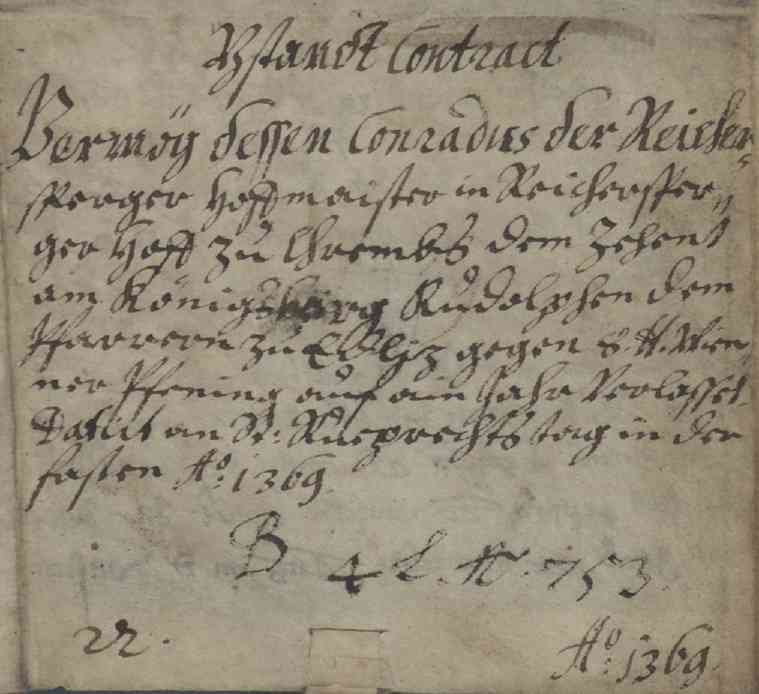 Bstandt Contract
Vermög dessen Conradus der Reicher-
sperger Hoffmaister in Reichersper-
ger Hoff zu Chrembs dem Zehent
am Königsberg Rudolphen dem
Pfarrern zu gegen 8. tt. Wien-
ner Pfening auf ain Jahr Verlasset.
Datut an St: Rueprechts tag in der
fasten Ao: 1369
B 4 L. No. 753.
22.
Ao: 1369.